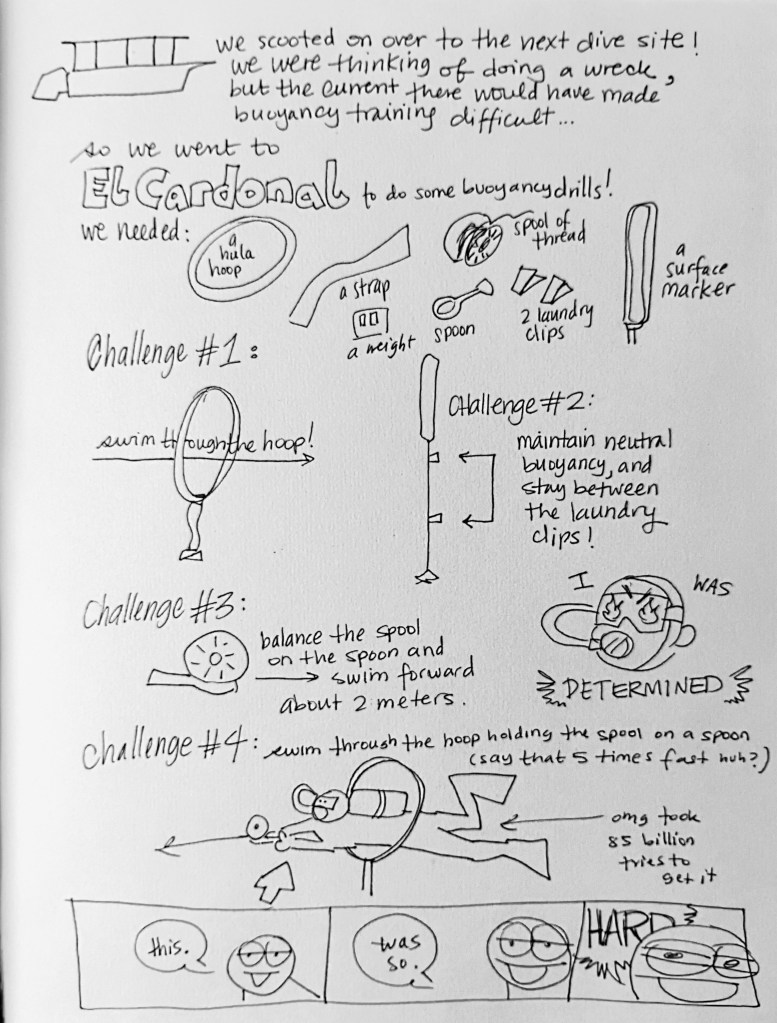 we scooted on over to the next dive site!
we were thinking of doing a wreck,
but the current there would have made
buoyancy training difficult...
so we went to
El Cardonal to do some buoyancy drills!
we needed:
a
hula
hoop
a strap
a weight
spool of
thread
spoon
2 laundry
clips
a
surface
marker
Challenge #1:
swim through the hoop!
Challenge #2:
maintain neutral
buoyancy, and
stay between
the laundry
clips!
Challenge #3:
balance the spool
on the spoon and
swim forward
about 2 meters.
I WAS
DETERMINED
Challenge #4: swim through the hoop holding the spool on a spoon
(say that 5 times fast huh?)
omg took
85 billion
tries to
get it
this.
was
so.
HARD